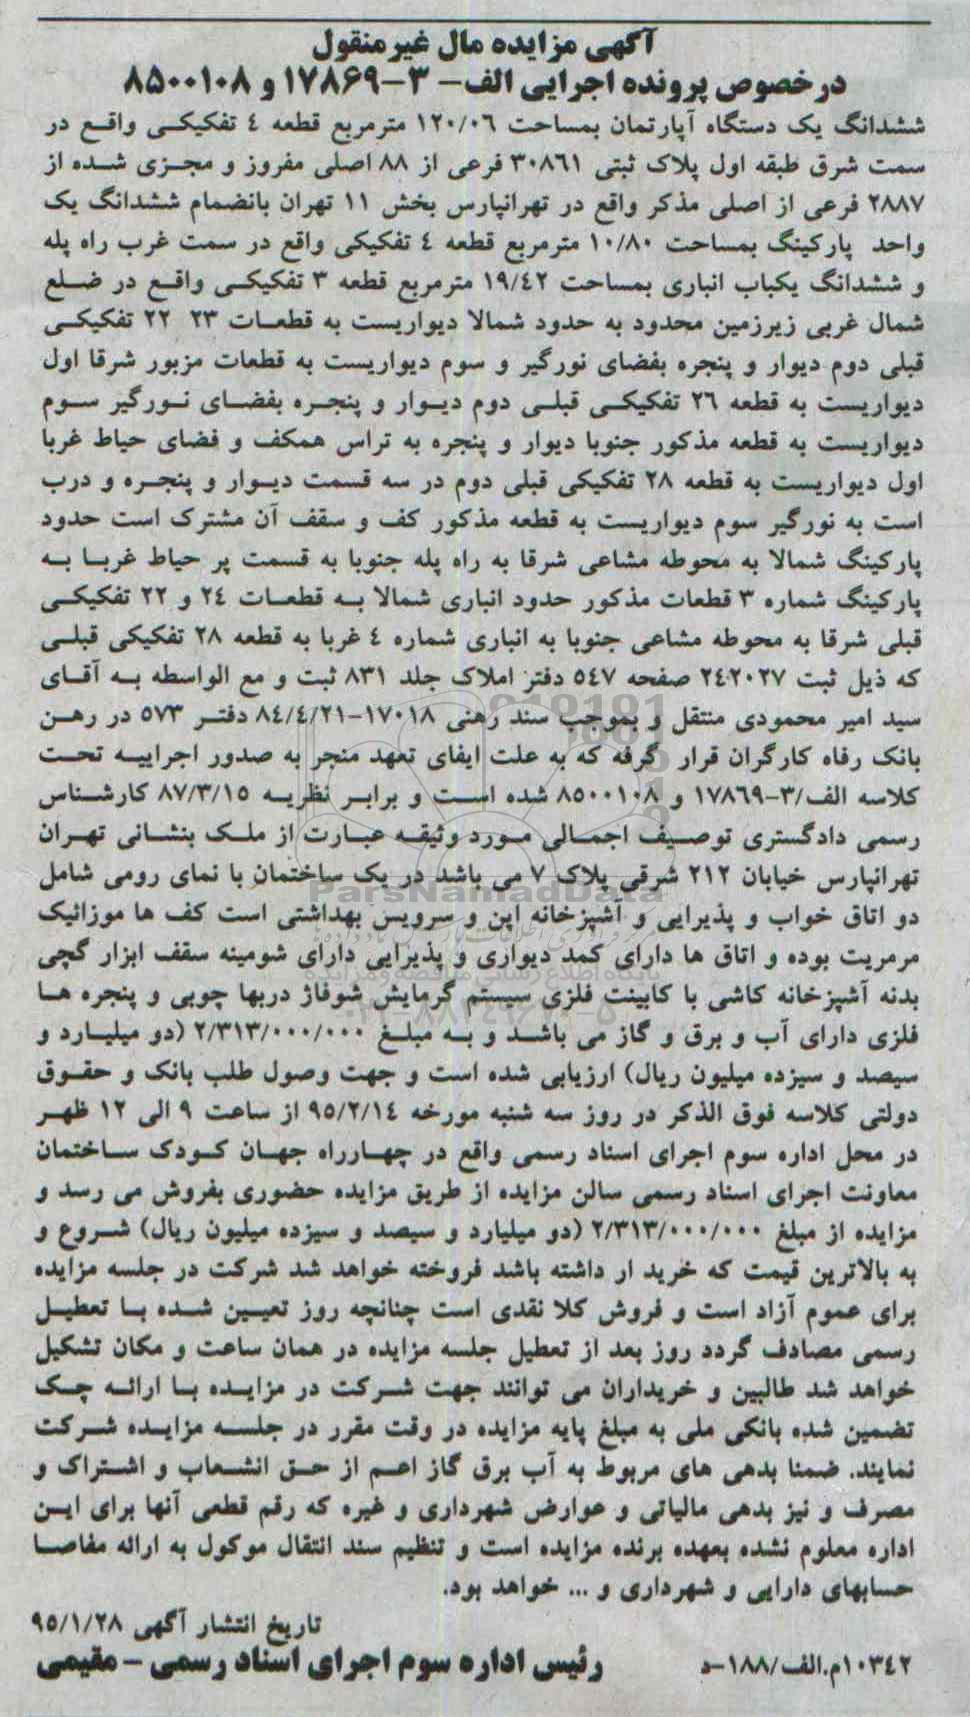 آگهی مزایده مال غیرمنقول
درخصوص پرونده اجرایی الف- ۳-۱۷۸۶۹ و ۸۵۰۰۱۰۸
ششدانگ یک دستگاه آپارتمان بمساحت ۱۲۰/۰۶ مترمربع قطعه ٤ تفکیکی واقع در
سمت شرق طبقه اول پلاک ثبتی ۳۰۸٦۱ فرعی از ۸۸ اصلی مفروز و مجزی شده از
۲۸۸۷ فرعی از اصلی مذکر واقع در تهرانپارس بخش ۱۱ تهران بانضمام ششدانگ یک
واحد پارکینگ بمساحت ۱۰/۸۰ مترمربع قطعه ٤ تفکیکی واقع در سمت غرب راه پله
و ششدانگ یکباب انباری بمساحت ۱۹/٤۲ مترمربع قطعه ۳ تفکیکی واقع در ضلع
شمال غربی زیرزمین محدود به حدود شمالا دیواریست به قطعات ۲۳ ۲۲ تفکیکی
قبلی دوم دیوار و پنجره بفضای نورگیر و سوم دیواریست به قطعات مزبور شرقا اول
دیواریست به قطعه ۲٦ تفکیکی قبلی دوم دیوار و پنجره بفضای نورگیر سوم
دیواریست به قطعه مذکور جنوبا دیوار و پنجره به تراس همکف و فضای حیاط غربا
اول دیواریست به قطعه ۲۸ تفکیکی قبلی دوم در سه قسمت دیوار و پنجره و درب
است به نورگیر سوم دیواریست به قطعه مذکور کف و سقف آن مشترک است حدود
پارکینگ شمالا به محوطه مشاعی شرقا به راه پله جنوبا به قسمت پر حیاط غربا به
پارکینگ شماره ۳ قطعات مذکور حدود انباری شمالا به قطعات ۲٤ و ۲۲ تفکیکی
قبلی شرقا به محوطه مشاعی جنوبا به انباری شماره ٤ غربا به قطعه ۲۸ تفکیکی قبلی
که ذیل ثبت ۲٤۲۰۲۷ صفحه ٥٤۷ دفتر املاک جلد ۸۳۱ ثبت و مع الواسطه به آقای
سید امیر محمودی منتقل و بموجب سند رهنی ۱۷۰۱۸-۸٤/٤/۲۱ دفتر ٥۷۳ در رهن
بانک رفاه کارگران قرار گرفه که به علت ایفای تعهد منجر به صدور اجراییه تحت
کلاسه الف/۳-۱۷۸٦۹ و ۸٥۰۰۱۰۸ شده است و برابر نظریه ۸۷/۳/۱٥ کارشناس
رسمی دادگستری توصیف اجمالی مورد وثیقه عبارت از ملک بنشانی تهران
تهرانپارس خیابان ۲۱۲ شرقی پلاک ۷ می باشد در یک ساختمان با نمای رومی شامل
دو اتاق خواب و پذیرایی و آشپزخانه اپن و سرویس بهداشتی است کف ها موزائیک
مرمریت بوده و اتاق ها دارای کمد دیواری و پذیرایی دارای شومینه سقف ابزار گچی
بدنه آشپزخانه کاشی با کابینت فلزی سیستم گرمایش شوفاژ دربها چوبی و پنجره ها
فلزی دارای آب و برق و گاز می باشد و به مبلغ ۲/۳۱۳/۰۰۰/۰۰۰ (دو میلیارد و
سیصد و سیزده میلیون ریال) ارزیابی شده است و جهت وصول طلب بانک و حقوق
دولتی کلاسه فوق الذکر در روز سه شنبه مورخه ۹٥/۲/۱٤ از ساعت ۹ الی ۱۲ ظهر
در محل اداره سوم اجرای اسناد رسمی واقع در چهارراه جهان کودک ساختمان
معاونت اجرای اسناد رسمی سالن مزایده از طریق مزایده حضوری بفروش می رسد و
مزایده از مبلغ ۲/۳۱۳/۰۰۰/۰۰۰ (دو میلیارد و سیصد و سیزده میلیون ریال) شروع و
به بالاترین قیمت که خرید ار داشته باشد فروخته خواهد شد شرکت در جلسه مزایده
برای عموم آزاد است و فروش کلا نقدی است چنانچه روز تعیین شده با تعطیل
رسمی مصادف گردد روز بعد از تعطیل جلسه مزایده در همان ساعت و مکان تشکیل
خواهد شد طالبین و خریداران می توانند جهت شرکت در مزایده با ارائه چک
تضمین شده بانکی ملی به مبلغ پایه مزایده در وقت مقرر در جلسه مزایده شرکت
نمایند. ضمنا بدهی های مربوط به آب برق گاز اعم از حق انشعاب و اشتراک و
مصرف و نیز بدهی مالیاتی و عوارض شهرداری و غیره که رقم قطعی آنها برای این
اداره معلوم نشده بعهده برنده مزایده است و تنظیم سند انتقال موکول به ارائه مفاصا
حسابهای دارایی و شهرداری و ... خواهد بود.
تاریخ انتشار آگهی ۹٥/۱/۲۸
۱۰۳٤۲م.الف/۱۸۸-د رئیس اداره سوم اجرای اسناد رسمی - مقیمی
ParsNamadData
پایگاه اطلاع رسانی مناقصه و مزایده